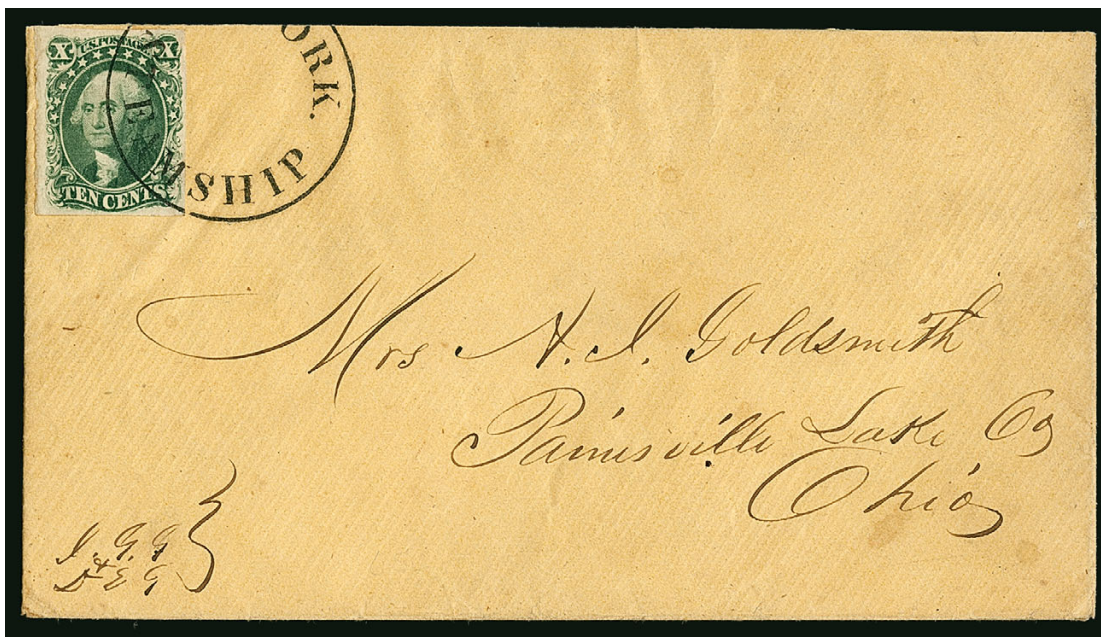 X U.S. POSTAGE X
TEN CENTS
ORK.
EAMSHIP
Mrs A. I. Goldsmith
Painesville Lake Co
Ohio
I. G. G
& D E G